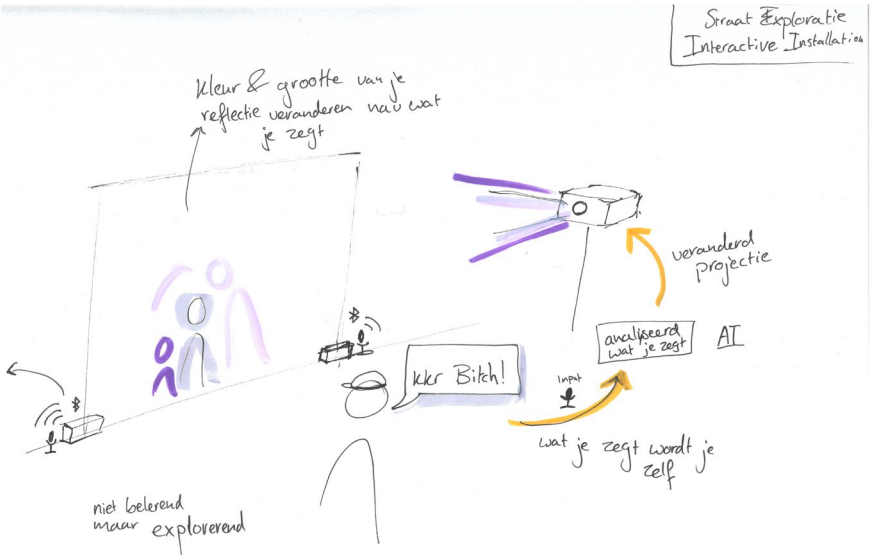 Straat Exploratie
Interactive Installation
kleur & grootte van je
reflectie veranderen nav wat
je zegt
veranderd
projectie
analyseerd
wat je zegt
AI
kkr Bitch!
Input
wat je zegt wordt je
zelf
niet belerend
maar explorerend